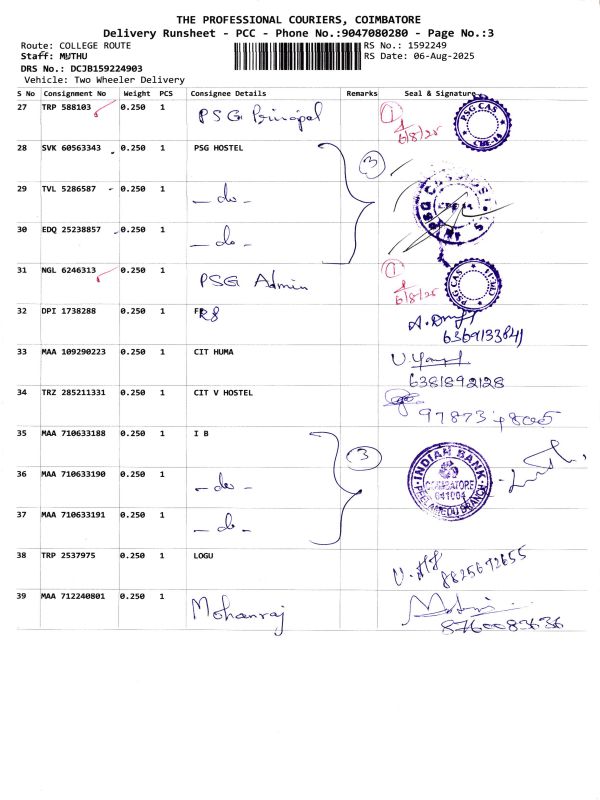 THE PROFESSIONAL COURIERS, COIMBATORE
Delivery Runsheet - PCC - Phone No.:9047080280 - Page No.:3
Route: COLLEGE ROUTE RS No.: 1592249
Staff: MUTHU RS Date: 06-Aug-2025
DRS No.: DCJB159224903
Vehicle: Two Wheeler Delivery
S No Consignment No Weight PCS Consignee Details Remarks Seal & Signature
27 TRP 588103 0.250 1 PSG Principal 1 6/8/25 PSG CAS CBE-14
28 SVK 60563343 0.250 1 PSG HOSTEL 3
29 TVL 5286587 0.250 1 - do -
30 EDQ 25238857 0.250 1 - do -
31 NGL 6246313 0.250 1 PSG Admin 1 6/8/25 PSG CAS
32 DPI 1738288 0.250 1 6369133841
33 MAA 109290223 0.250 1 CIT HUMA 6381892128
34 TRZ 285211331 0.250 1 CIT V HOSTEL
35 MAA 710633188 0.250 1 I B 3 INDIAN BANK COIMBATORE 641004 PEELAMEDU BRANCH
36 MAA 710633190 0.250 1 - do -
37 MAA 710633191 0.250 1 - do -
38 TRP 2537975 0.250 1 LOGU 8825672655
39 MAA 712240801 0.250 1 Mohanraj 8760083636